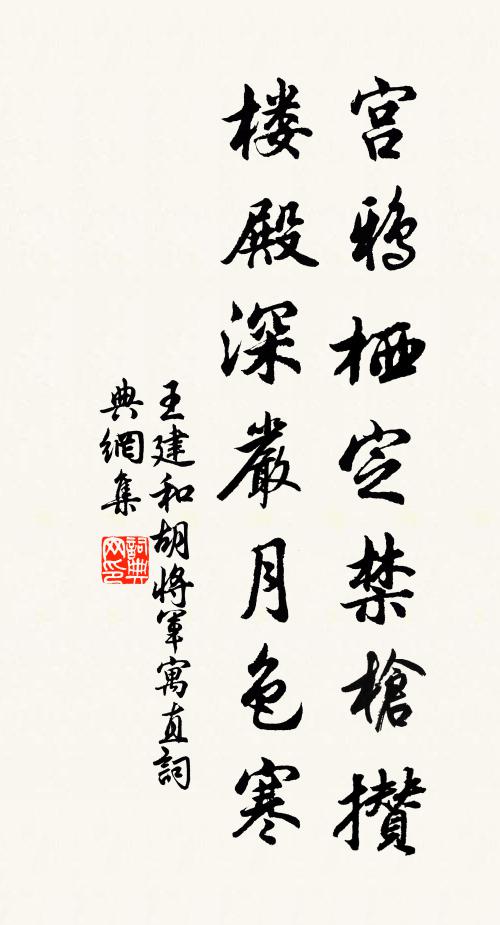 宫鸦栖定禁槍攢
楼殿深嚴月色寒
王建和胡将軍寓直詞
典網集
詞典网印